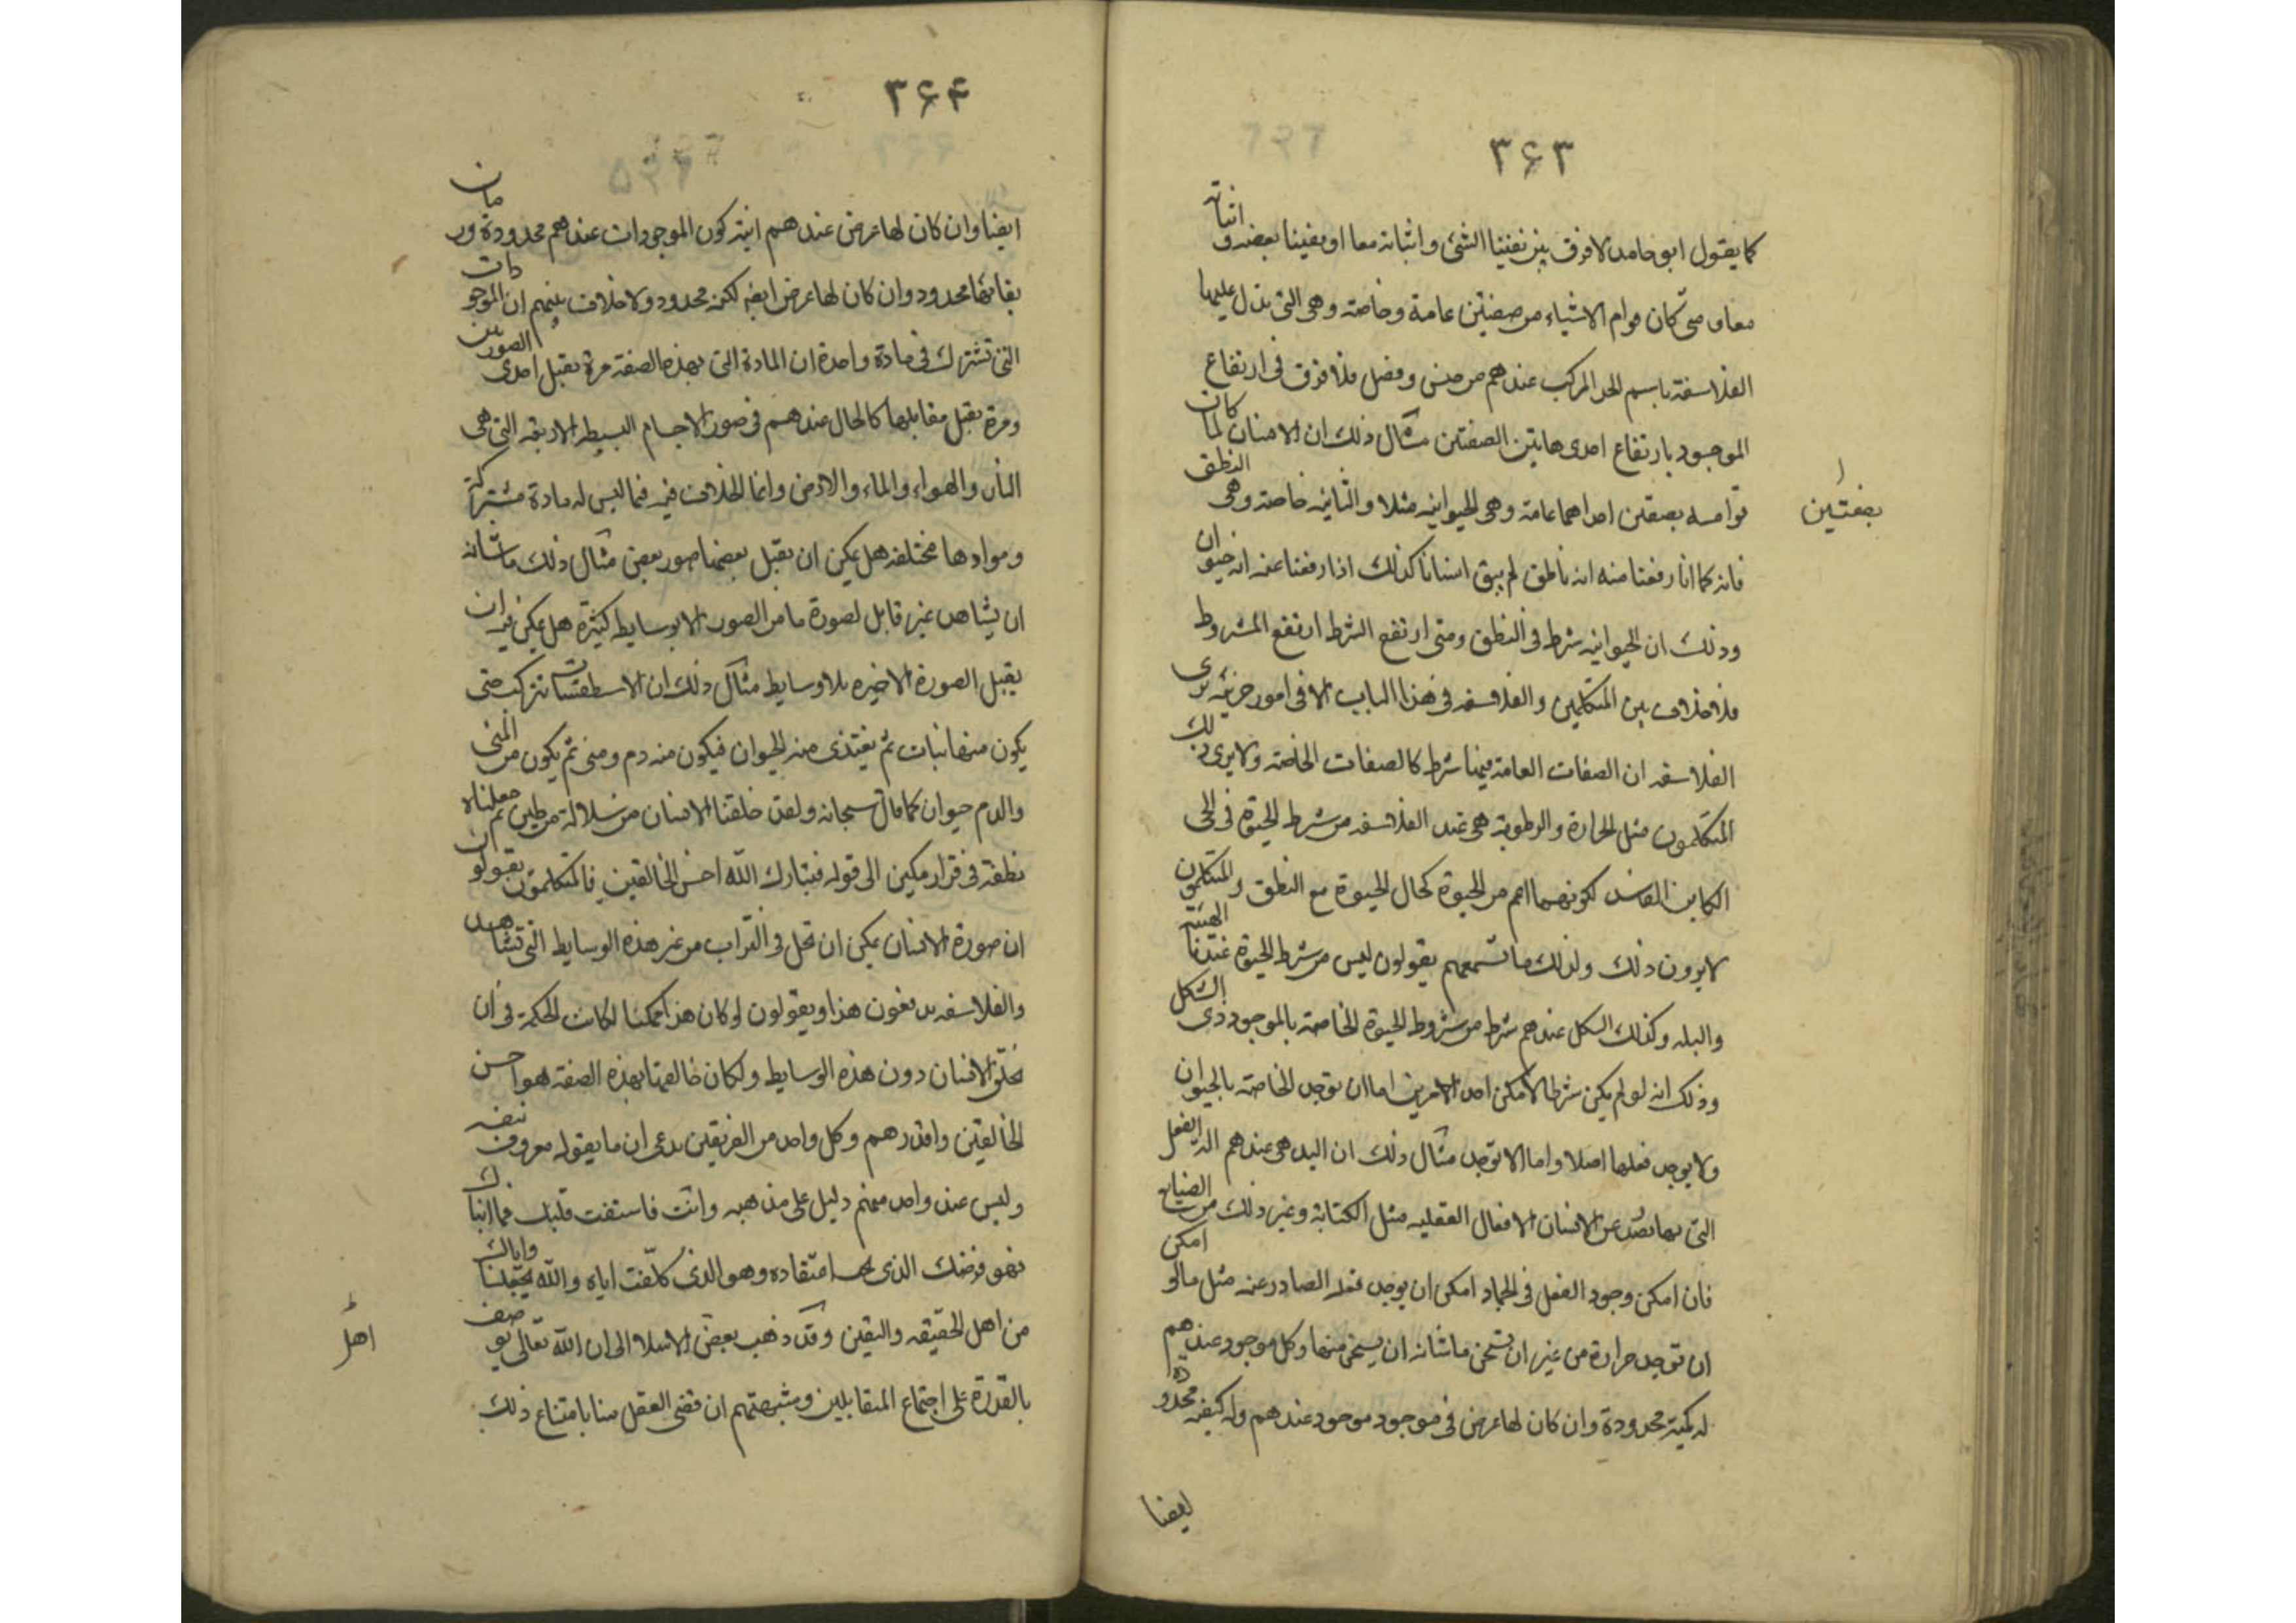 ٣۶٣
كما يقول ابو حامد لا فرق بين نفينا الشئ واثباته معا او نفينا بعضه واثباته
معا ومتى كان قوام الاشياء من صفتين عامة وخاصة وهى التى يدل عليها
الفلاسفة باسم الحد المركب عندهم من جنس وفصل فلا فرق فى ارتفاع
الموجود بارتفاع احدى هاتين الصفتين مثال ذلك ان الانسان لما كان
قوامه بصفتين احداهما عامة وهى الحيوانيه مثلا والثانيه خاصة وهى النطق
بصفتين
فانه كما انا رفعنا منه انه ناطق لم يبق انسانا كذلك اذا رفعنا عنه انه حيوان
وذلك ان الحيوانيه شرط فى النطق ومتى ارتفع الشرط ارتفع المشروط
فلا خلاف بين المتكلمين والفلاسفه فى هذا الباب الا فى امور جزئيه يرى
الفلاسفه ان الصفات العامة فيها شرط كالصفات الخاصة ولا يرى ذلك
المتكلمون مثل الحرارة والرطوبة هى عند الفلاسفه من شرط الحيوة فى الحى
الكاين الفاسد لكونهما اعم من الحيوة كحال الحيوة مع النطق والمتكلمون
لا يرون ذلك ولذلك ما تسمعهم يقولون ليس من شرط الحيوة عندنا الهيئة
والبله وكذلك الشكل عندهم شرط من شروط الحيوة الخاصة بالموجود ذى الشكل
وذلك انه لو لم يكن شرطا لامكن احد الامرين اما ان توجد الخاصة بالحيوان
ولا يوجد فعلها اصلا واما الا توجد مثال ذلك ان اليد هى عندهم الة الفعل
التى بها تصدر عن الانسان الافعال العقليه مثل الكتابة وغير ذلك من الصنايع
فان امكن وجود العقل فى الجماد امكن ان يوجد فعله الصادر عنه مثل ما لو امكن
ان توجد حرارة من غير ان تسخن ما شانه ان يسخن منها وكل موجود عندهم
له كمية محدودة وان كان لها عرض فى موجود موجود عندهم وله كيفيه محدودة
ايضا
٣۶۴
ايضا وان كان لها عرض عندهم انية كون الموجودات عندهم محدودة وزمان
بقائها محدود وان كان لها عرض ايضه لكنه محدود ولا خلاف بينهم ان الموجودات
التى تشترك فى مادة واحدة ان المادة التى بهذه الصفة مرة تقبل احدى الصورتين
ومرة تقبل مقابلها كالحال عندهم فى صور الاجسام البسيطه الاربعه التى هى
النار والهواء والماء والارض وانما الخلاف فيه فيما ليس له مادة مشتركة
وموادها مختلفه هل يمكن ان يقبل بعضها صور بعض مثال ذلك ما شانه
ان يشاهد غير قابل لصورة ما من الصور الا بوسايط كثيرة هل يمكن فيه ان
يقبل الصورة الاخيره بلا وسايط مثال ذلك ان الاسطقسات تتركب حتى
يكون منها نبات ثم يغتذى منه الحيوان فيكون منه دم ومنى ثم يكون من المنى
والدم حيوان كما قال سبحانه ولقد خلقنا الانسان من سلالة من طين ثم جعلناه
نطفة فى قرار مكين الى قوله فتبارك الله احسن الخالقين فالمتكلمون يقولون
ان صورة الانسان يمكن ان تحل فى التراب من غير هذه الوسايط التى تشاهد
والفلاسفه يدفعون هذا ويقولون لو كان هذا ممكنا لكانت الحكمة فى ان
يخلق الانسان دون هذه الوسايط ولكان خالقها بهذه الصفة هو احسن
الخالقين واقدرهم وكل واحد من الفريقين يدعى ان ما يقوله معروف بنفسه
وليس عند واحد منهم دليل على مذهبه وانت فاستفت قلبك فما انباك
فهو فرضك الذى يجب اعتقاده وهو الذى كلفت اياه والله يجعلنا واياك
من اهل الحقيقه واليقين وقد ذهب بعض الاسلا الى ان الله تعالى يوصف
اهل
بالقدرة على اجتماع المتقابلين وشبهتهم ان قضى العقل منا بامتناع ذلك